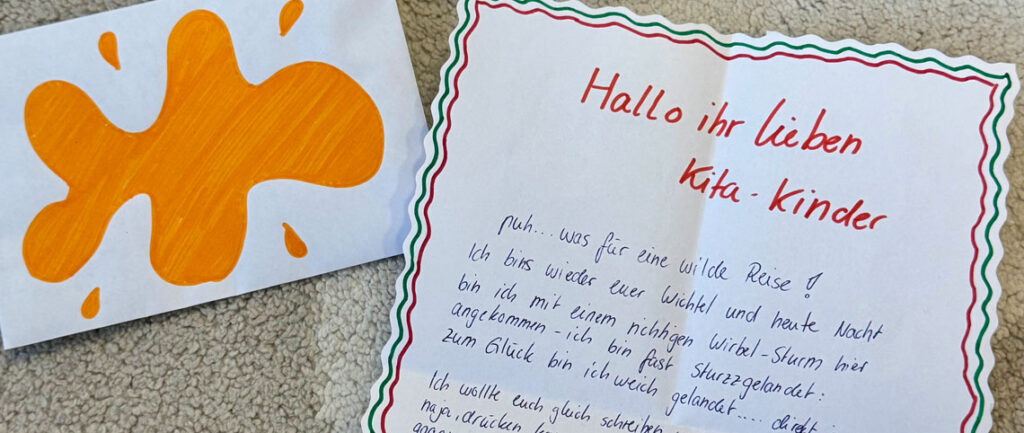 Hallo ihr lieben
Kita-Kinder
puh... was für eine wilde Reise!
Ich bins wieder euer Wichtel und heute Nacht
bin ich mit einem richtigen Wirbel-Sturm hier
angekommen - ich bin fast Sturzzgelandet:
zum Glück bin ich weich gelandet.... direkt
Ich wollte euch gleich schreiben
naja, drücken